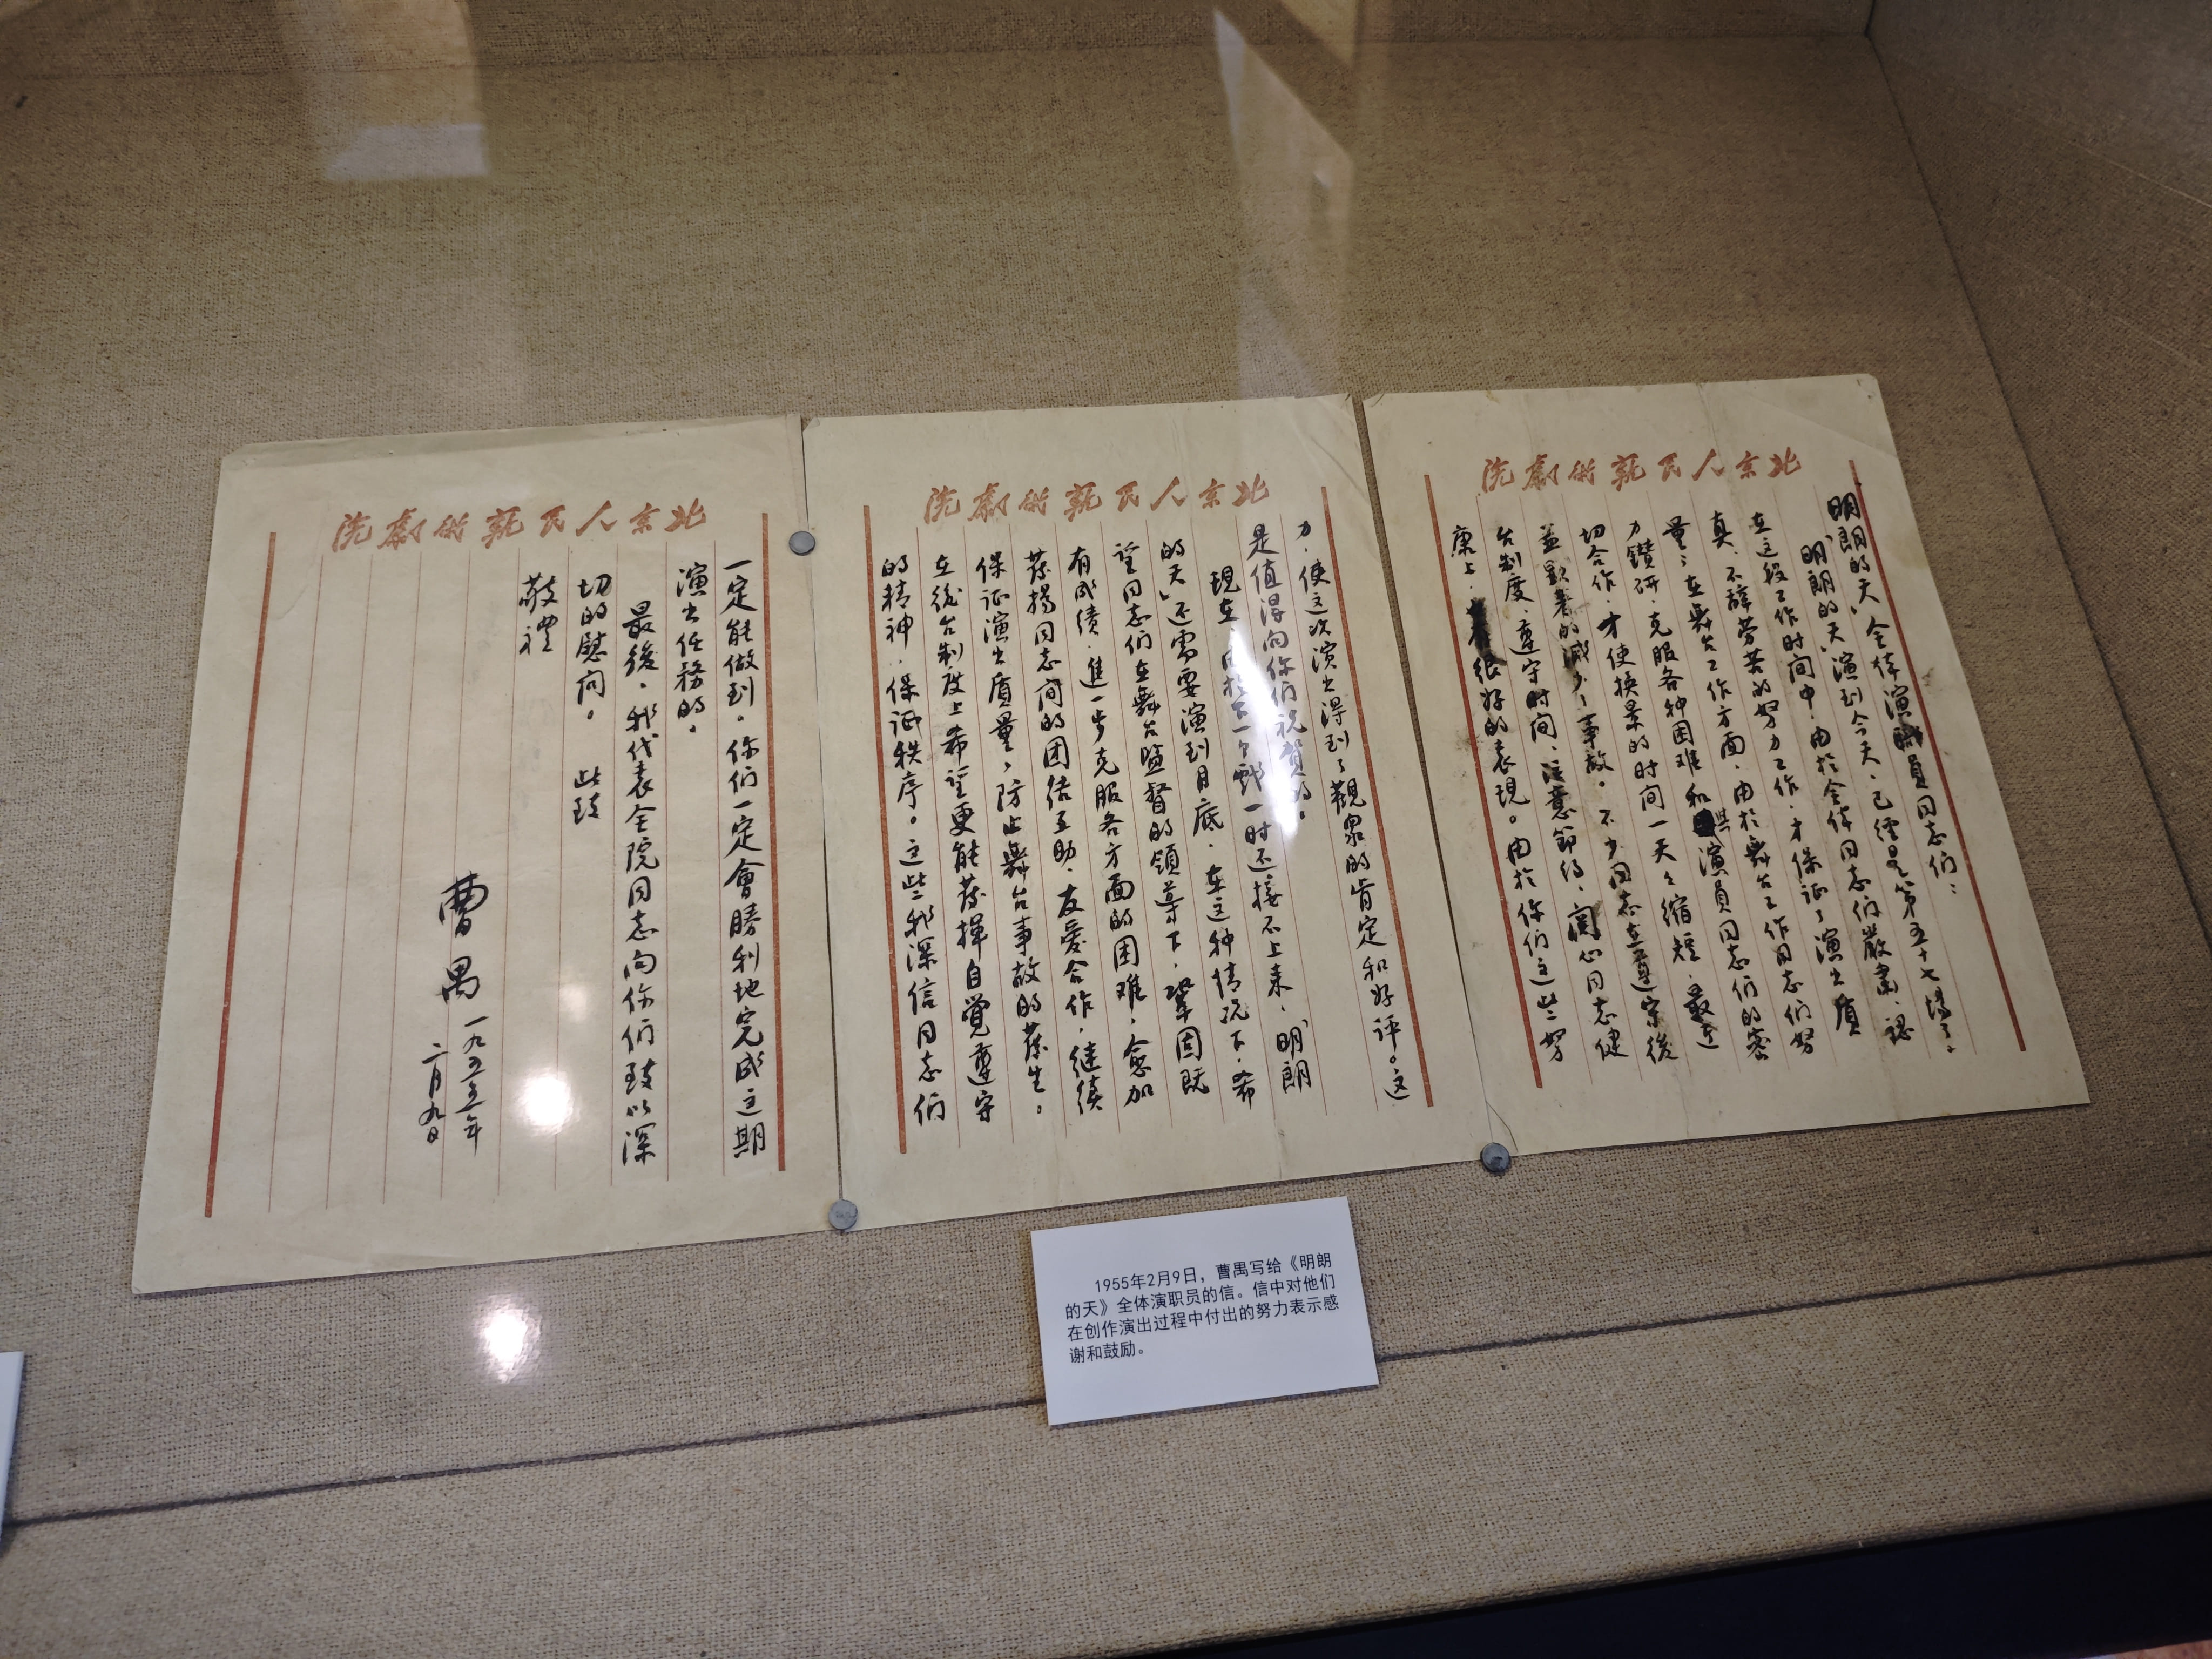 北京人民藝術劇院
明朗的天，全体演職員同志們：
“明朗的天”演到今天，已經是第五十七場了。
在这段工作时间中，由於全体同志们嚴肅、認
真、不辞劳苦的努力工作，才保証了演出質
量；在舞台工作方面，由於舞台工作同志们努
力鑽研，克服各种困难和與演員同志们的密
切合作，才使換景的时间一天天縮短，最近
並顯著的減少了事故。不少同志在遵守後
台制度，遵守时间、注意節約、関心同志健
康上，很好的表現。由於你们这些努
北京人民藝術劇院
力，使这次演出得到了觀衆的肯定和好评。这
是值得向你们祝賀的。
現在，由於下一个戲一时还接不上来，“明朗
的天”还需要演到月底，在这种情况下，希
望同志们在舞台监督的領導下，鞏固既
有成績，進一步克服各方面的困难，愈加
發揚同志间的团结互助，友愛合作，继续
保证演出质量，防止舞台事故的發生。
在後台制度上希望更能發揮自覺遵守
的精神，保证秩序。这些我深信同志们
北京人民藝術劇院
一定能做到。你们一定會勝利地完成这期
演出任務的。
最後，我代表全院同志向你们致以深
切的慰问。 此致
敬禮
曹禺 一九五五年
二月九日
1955年2月9日，曹禺写给《明朗
的天》全体演职员的信。信中对他们
在创作演出过程中付出的努力表示感
谢和鼓励。